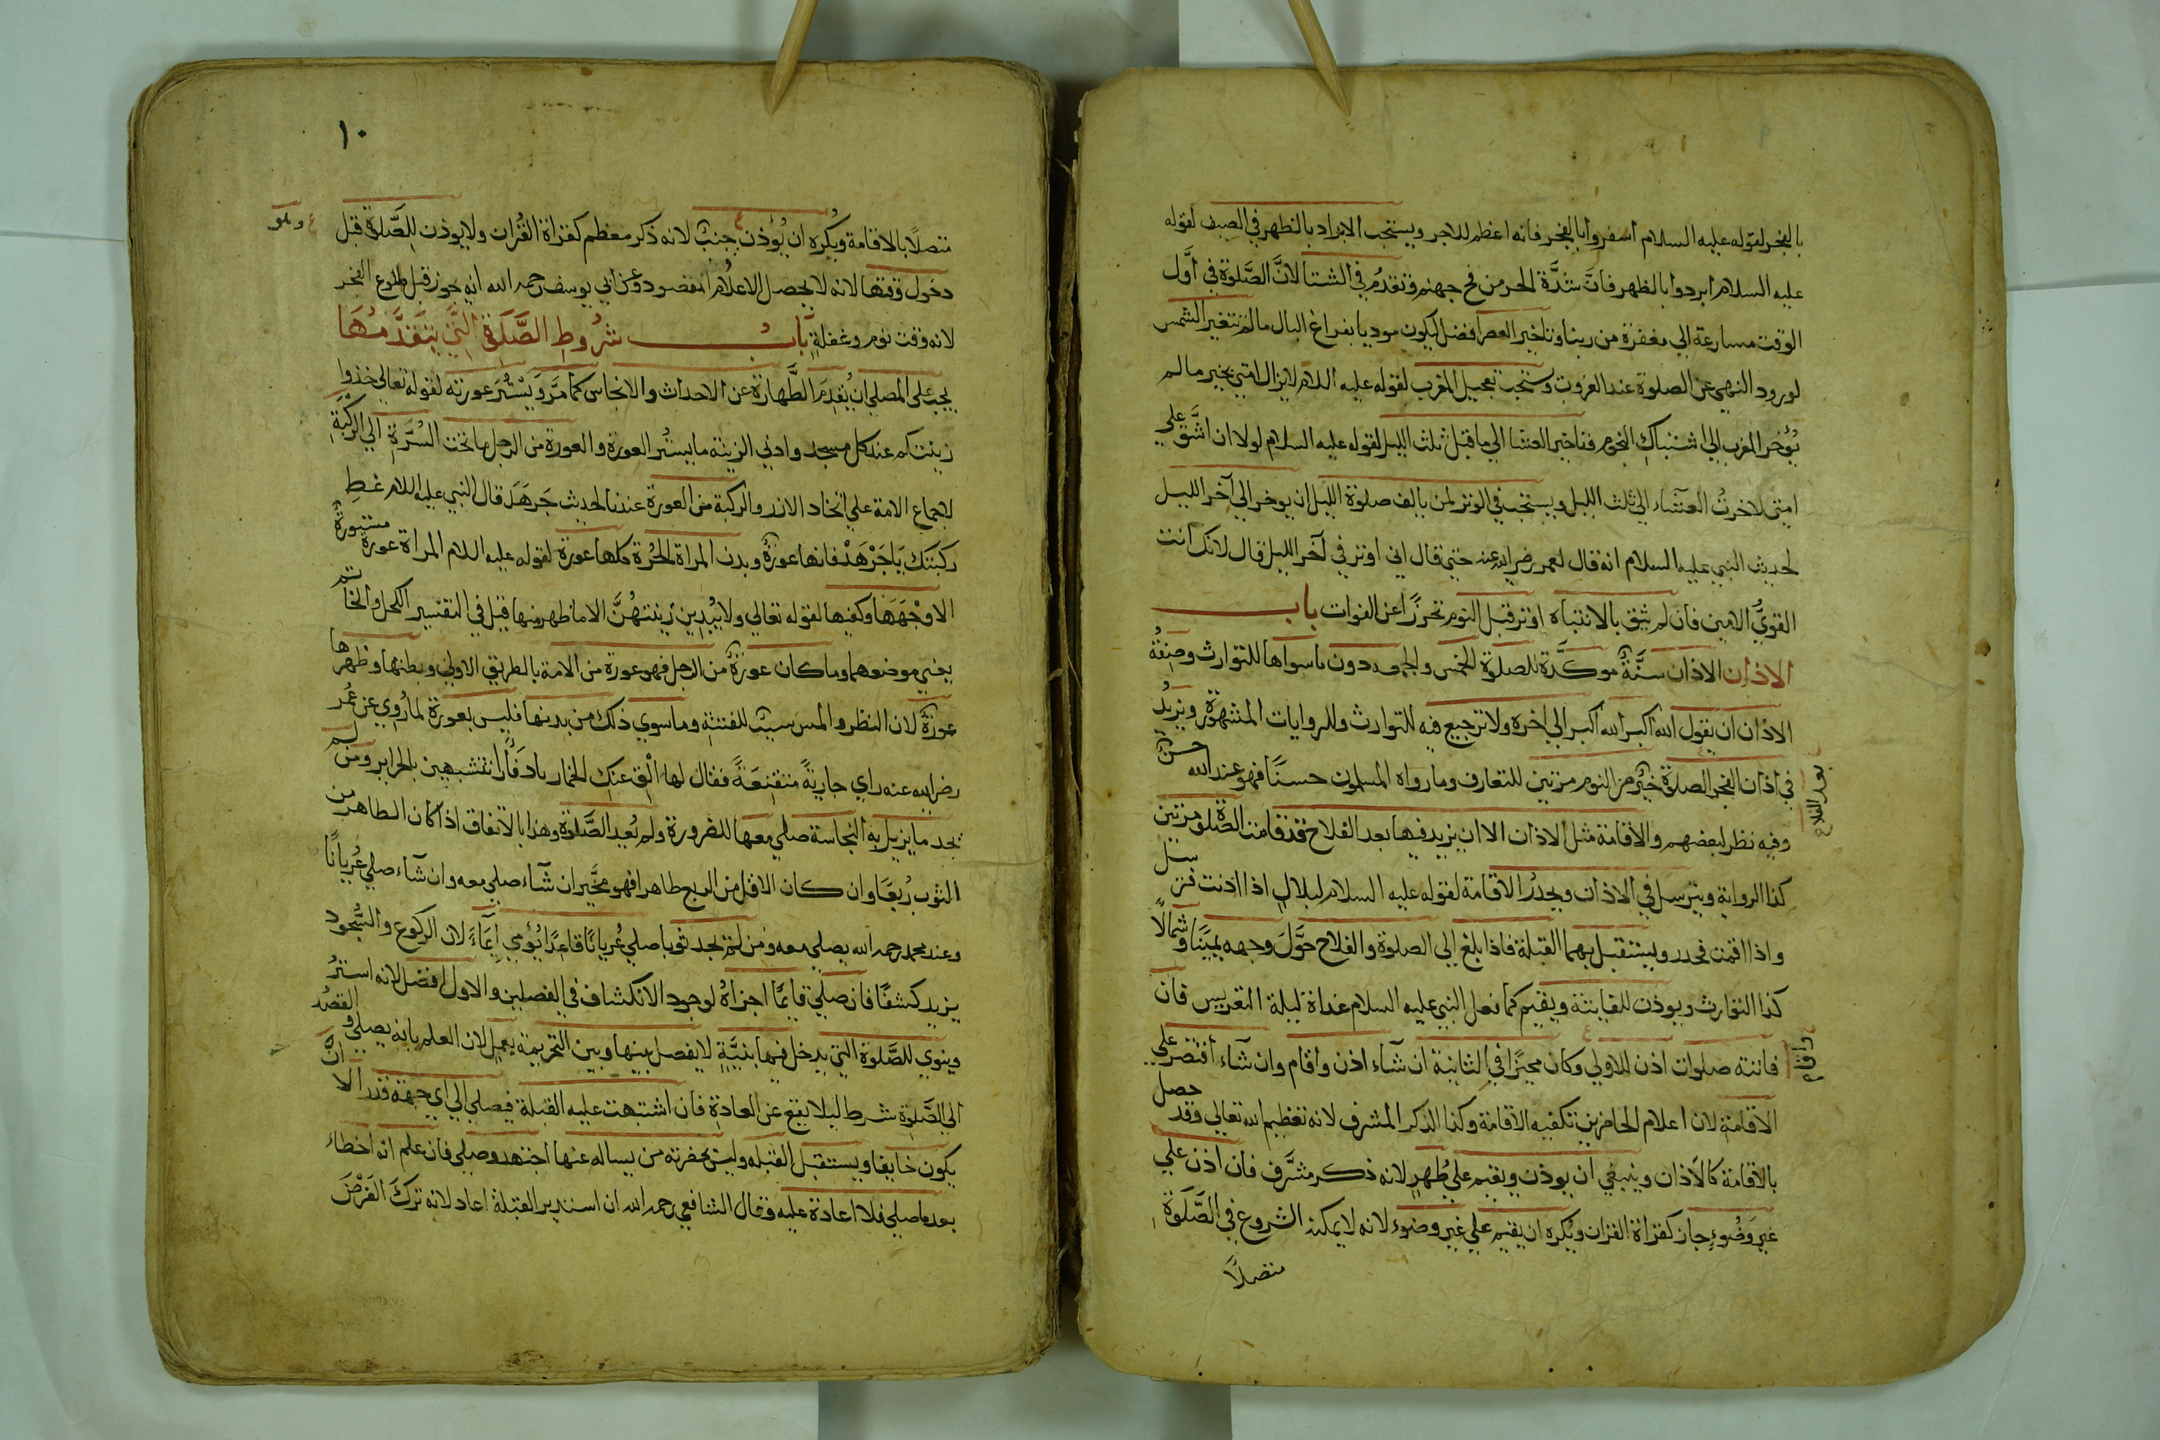 بالفجر لقوله عليه السلام اسفروا بالفجر فانه اعظم للاجر ويستحب الابراد بالظهر في الصيف لقوله
عليه السلام ابردوا بالظهر فان شدَّة الحر من فيح جهنم وتقدُم في الشتا لانَّ الصَّلوة في اوَّل
الوقت مسارعة الي مغفرة من ربنا وتاخير العصر افضل ليكون موديا بفراغ البال ما لم تتغير الشمس
لورود النهي عن الصلوة عند الغروب ويستحب تعجيل المغرب لقوله عليه اللام لا يزال امتي بخير ما لم
يُؤخر المغرب الي اشتباك النجوم وتاخير العشا الي ما قبل ثلث الليل لقوله عليه السلام لولا ان اشُقَّ علي
امتي لاخرتُ العشاء الي ثلث الليل ويستحب في الوتر لمن يالف صلوة الليل ان يوخر الي آخر الليل
لحديث النبي عليه السلام انه قال لعمر رضي الله عنه حتي قال اني اوتر في آخر الليل قال لانك انت
القويُّ الامين فان لم يثق بالانتباه اوتر قبل النوم تحرزًا عن الفوات باب
الاذان الاذان سنَّةٌ موكدَّة للصلوة الخمس والجمعه دون ما سواها للتوارث وصفةُ
الاذان ان يقول الله اكبر الله اكبر الي اخره ولا ترجيع فيه للتوارث وللروايات المشهورة ويزيدُ
في اذان الفجر الصلوة خيرٌ من النوم مرتين للتعارف وما رواه المسلمون حسنًا فهو عند الله حسنٌ
بعد الفلاح
وفيه نظر لبعضهم والاقامة مثل الاذان الا ان يزيد فيها بعد الفلاح قد قامت الصلوة مرتين
كذا الرواية ويترسل في الاذان ويحدُرُ الاقامة لقوله عليه السلام لبلال اذا اذنت فترسل
واذا اقمت فحدر ويستقبل بهما القبلة فاذا بلغ الي الصلوة والفلاح حوَّلَ وجهه يمينًا وشمالًا
كذا التوارث ويوذن للفايتة ويقيم كما فعل النبي عليه السلام غداة ليلة التعريس فان
فاتته صلوات اذن للاولي وكان مخيرًا في الثانية ان شآء اذن واقام وان شآء اقتصر علي
واقام
الاقامة لان اعلام الحاضرين تكفيه الاقامة وكذا الذكر المشرف لانه تعظيم لله تعالي وقد حصل
بالاقامة كالاذان وينبغي ان يوذن ويقيم علي طُهرٍ لانه ذكر مشرَّف فان اذن علي
غير وَضُوءٍ جاز كقراة القران ويُكره ان يقيم علي غير وضوء لانه لا يمكنه الشروع في الصَّلوة
متصلًا
١٠
متصلًا بالاقامة ويُكره ان يُؤذن جنبٌ لانه ذكر معظم كقراة القُران ولا يوذن لِلصَّلوة قبل
دخول وقتها لانه لا يحصل الاعلام المقصود وعن ابي يوسف رحمه الله انه جوز قبل طلوع الفجر
لانه وقت نوم وغفلةٍ بَابُ شرُوطِ الصَّلَوة الَّتي يَتقَدَّمُهَا
يجب علي المصلي ان يُقدِمَ الطَّهارة عن الاحداث والانجاس كما مرَّ وَيَسْتُرَ عورته لقوله تعالي خذوا
زينتكم عند كل مسجد وادني الزينة ما يستُر العورة والعورة من الرجل ما تحت السُّرَّةِ الي الرُّكبَةِ
لاجماع الامة علي اتخاذ الازر والركبة من العورة عندنا لحديث جَرهَدَ قال النبي عليه اللام غطِ
ركبتك يَا جَرْهَدْ فانها عورةٌ وبدن المراة الحُرة كلها عورة لقوله عليه اللام المراة عورة مستورةٌ
الا وَجْهَهَا وكفيها لقوله تعالي ولا يُبْدِينَ زينتهُنَّ الا ما ظهر منها قيل في التفسير الكحل والخاتم
يعني موضعهما وما كان عورةً من الرجل فهو عورة من الامة بالطريق الاولي وبطنها وظهرها
عورةٌ لان النظر والمس سببٌ للفتنةِ وما سوي ذلك من بدنها فليس بعورة لما رُوي عن عُمر
رضي الله عنه راي جاريةً متقنِعَةً فقال لها القِ عنكِ الخمار يا دَفَارِ اتتشبهين بالحراير ومن لم
يجد ما يزيل به النجاسة صلي معها للضرورة ولم يُعِد الصَّلوة وهذا بالاتفاق اذا كان الطاهر من
الثوب رُبعًا وان كان الاقل من الربع طاهرا فهو مخَّير ان شآء صلي معه وان شآء صلي عُريانًا
وعند محمد رحمه الله يصلي معه ومن لم يجد ثوبا صلي عُريانًا قاعدًا يُؤمي ايماءً لان الركوع والسُّجود
يزيد كشفًا فان صلي قايمًا اجزاهُ لوجود الانكشاف في الفصلين والاول افضل لانه استرُ
وينوي للصَّلوة التي يدخل فيها بنيَّةٍ لا يفصل بينها وبين التحريمة بعمل لان العلم بانه يصلي والقصد
الي الصَّلوة شرط ليلا يقع عن العادة فان اشتبهت عليه القبلة فيصلي الي اي جهة قدر الا انَّ
يكون خايفا ويستقبل القبله وليس بحضرته من يساله عنها اجتهد وصلي فان علم انه اخطاء
بعد ما صلي فلا اعادة عليه وقال الشافعي رحمه الله ان استدبر القبلة اعاد لانه تركَ الفَرْضَ